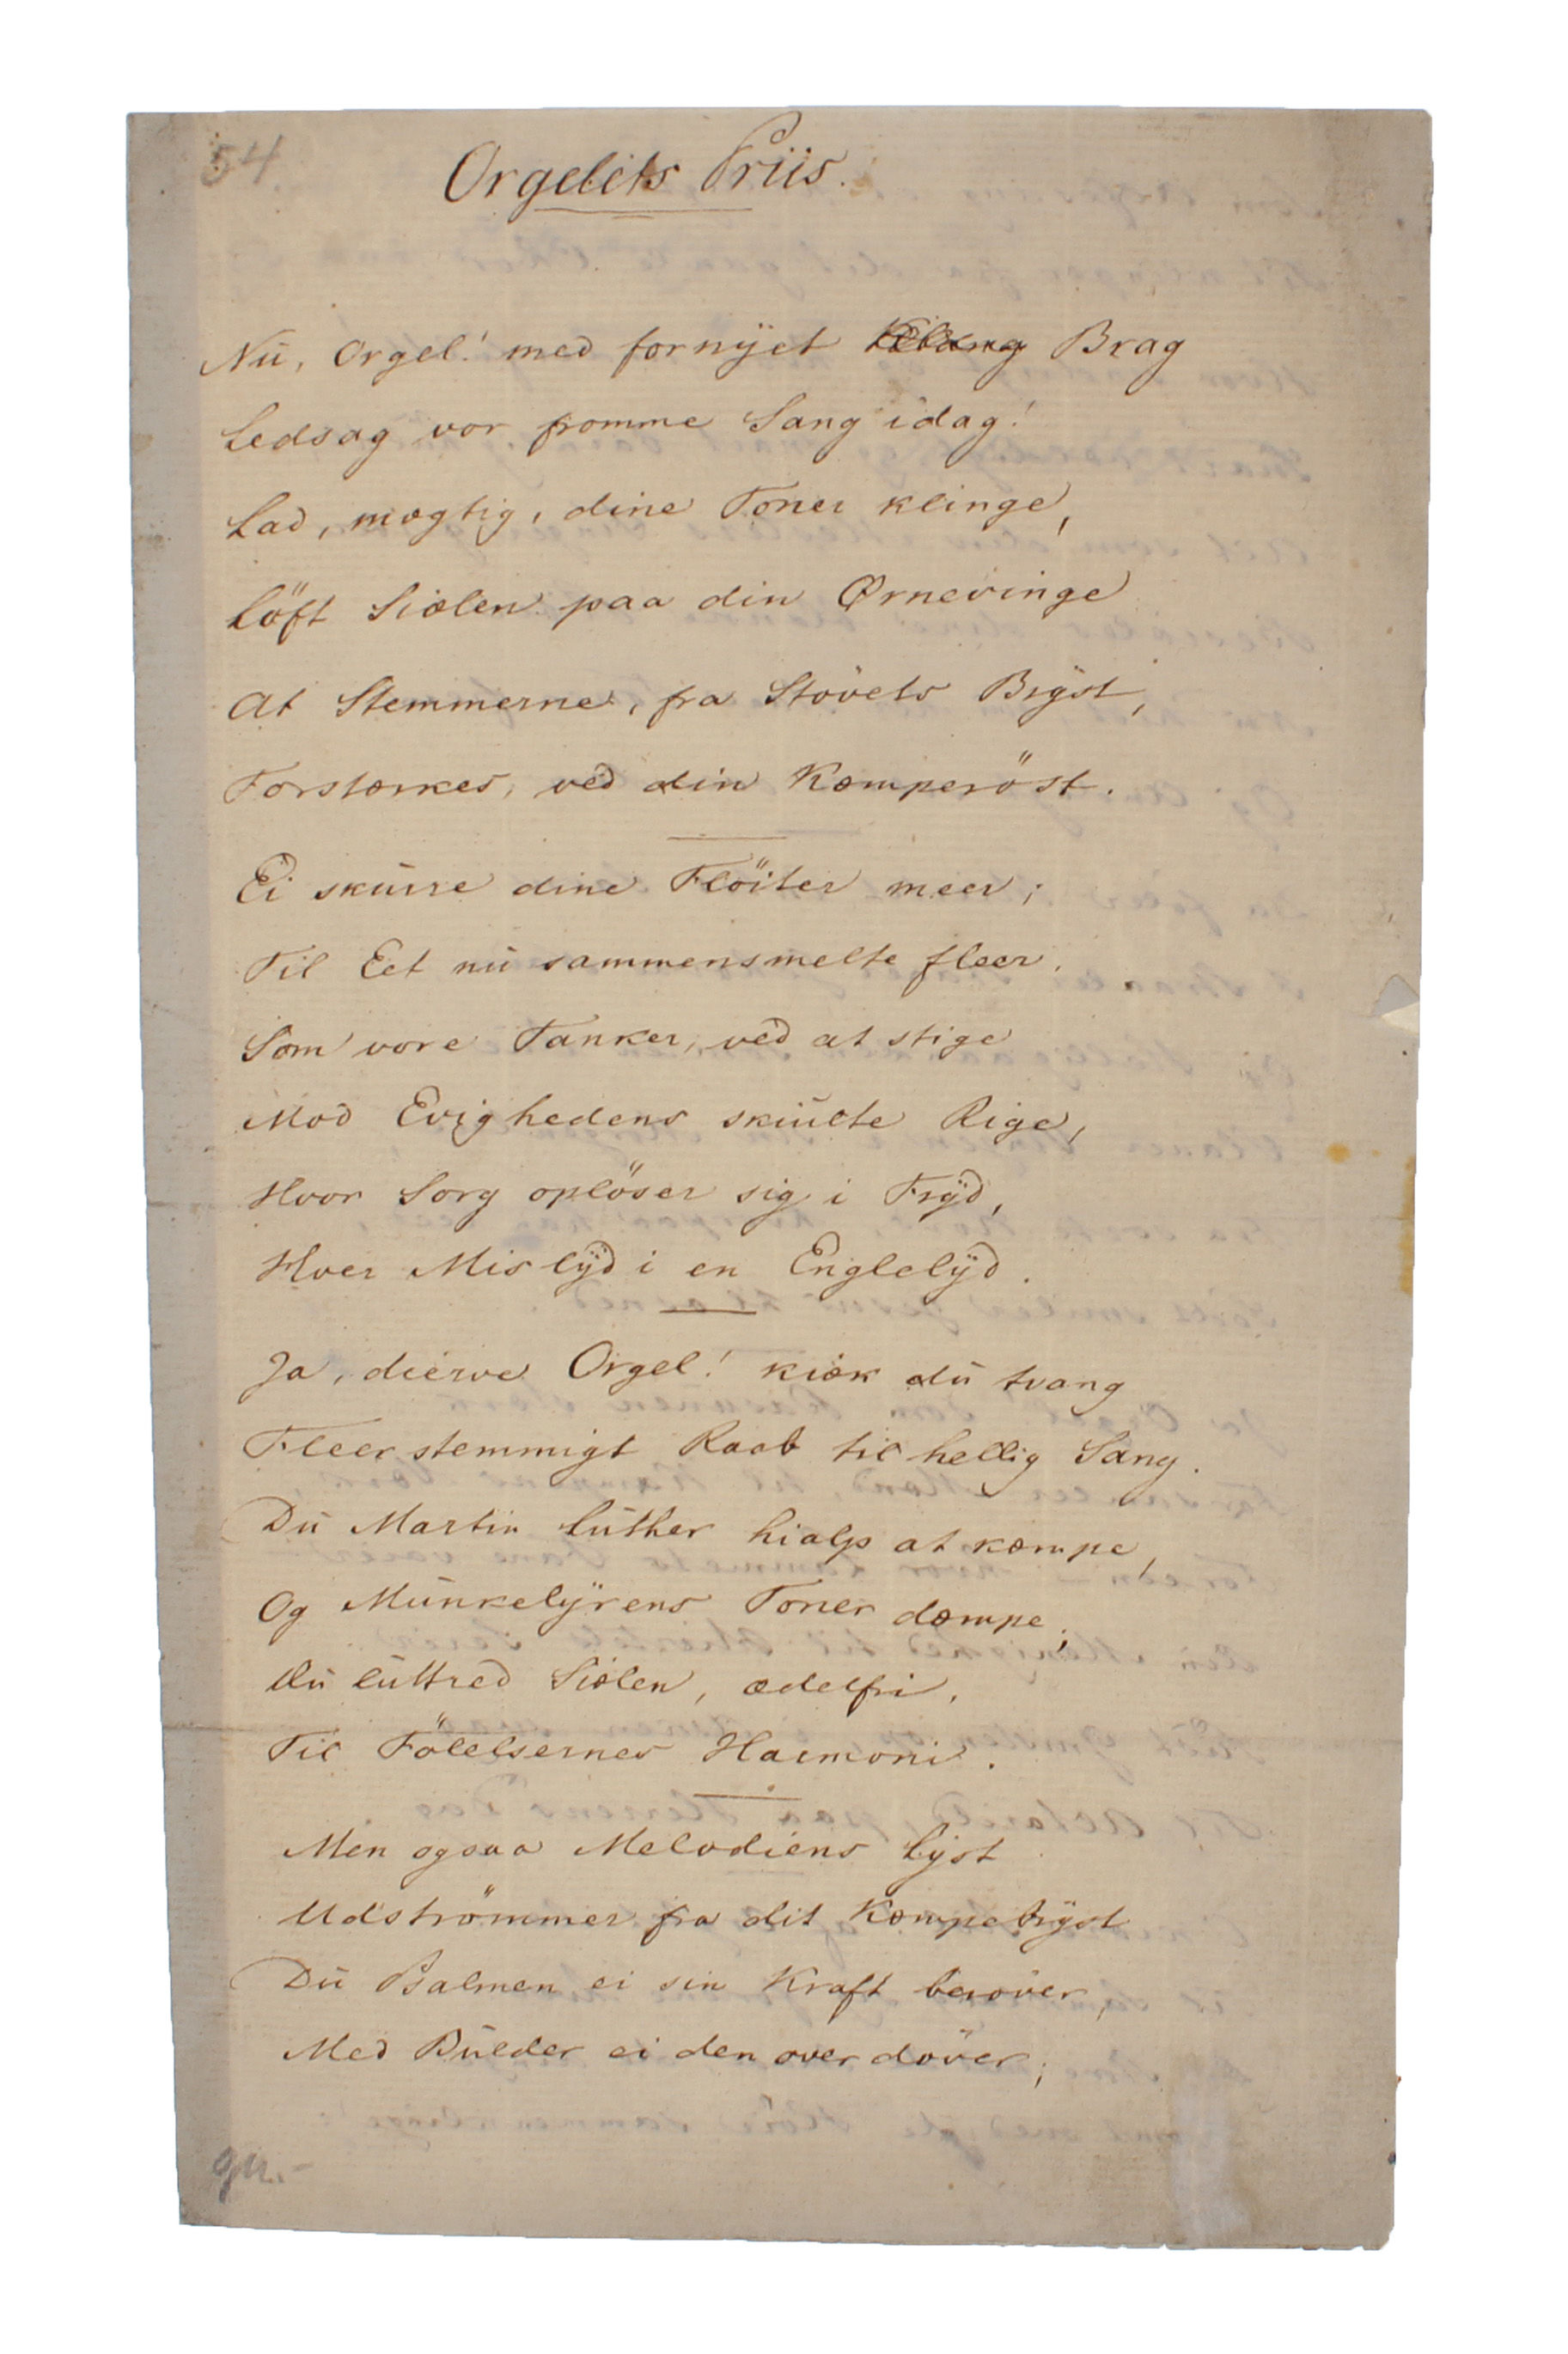 54.
Orgelets Priis.
Nu, Orgel! med fornÿet Klang Brag
Ledsag vor fromme Sang idag!
Lad, mægtig, dine Toner klinge,
Löft Siælen paa din Ørnevinge
At Stemmerne, fra Stövets Brÿst,
Forstærkes, ved din Kæmperöst.
Ei skurre dine Flöiter meer;
Til Eet nu sammensmelte fleer,
Som vore Tanker, ved at stige
Mod Evighedens skiulte Rige,
Hvor Sorg oplöser sig i Frÿd,
Hver Mislÿd i en Englelÿd.
Ja, dierve Orgel! kiæk du tvang
Fleerstemmigt Raab til hellig Sang.
Du Martin Luther hialp at kæmpe,
Og Munkelÿrens Toner dæmpe;
Du luttred Siælen, ædelfri,
Til Fölelsernes Harmoni.
Men ogsaa Melodiens Lÿst
Udströmmer fra dit Kæmpebrÿst
Du Psalmen ei sin Kraft beröver,
Med Bulder ei den overdöver;